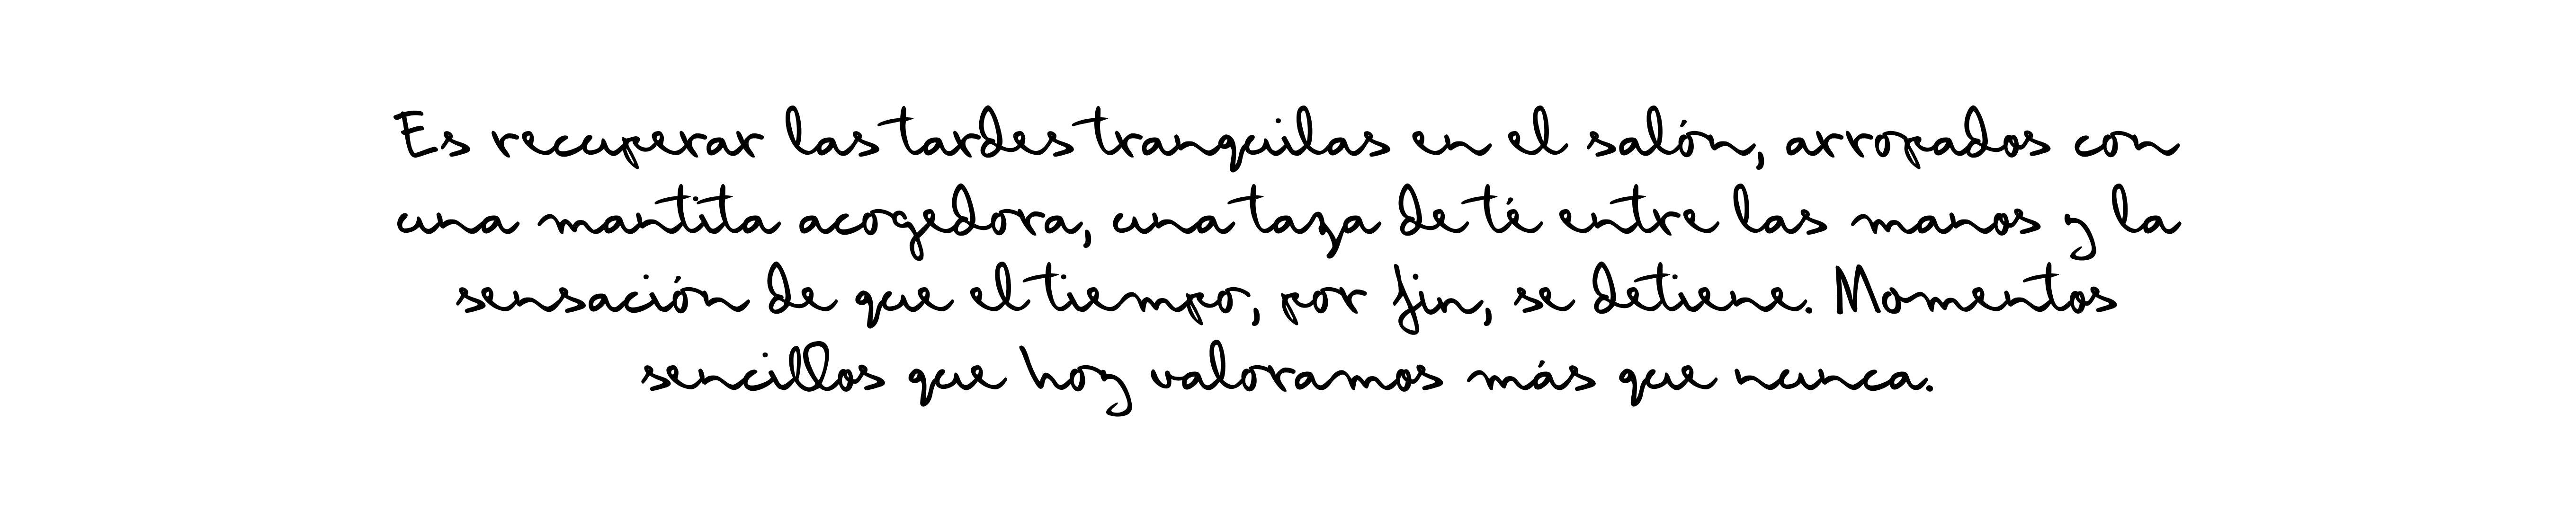 Es recuperar las tardes tranquilas en el salón, arropados con
una mantita acogedora, una taza de té entre las manos y la
sensación de que el tiempo, por fin, se detiene. Momentos
sencillos que hoy valoramos más que nunca.